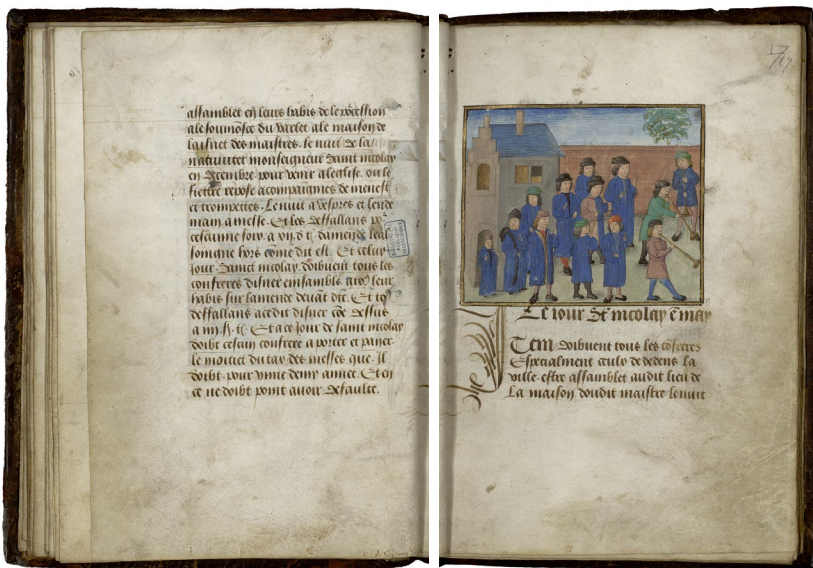 assamblet en leurs habis de le procession
a le semonse du varlet a le maison de
laisnet des maistres. le nuit de la
nativitet monseigneur saint nicolay
en decembre pour venir a leglise. ou le
fiertre repose acompaigniés de menest
et trompettes. Le nuit a vespres et lende
main a messe. Et les deffallans po
cescune fois. a vi d t damende leal
songne hors come dit est. Et celuy
Jour Sainct nicolay. doibvent tous les
confreres disner ensamble avoec leur
habis sur lamende devat dite. Et to
deffallans a cedit disner come dessus
a iiij. s. t. Et a ce jour de saint nicolay
doibt cescun confrere aporter et paiier
le moittiet du tax des messes que. Il
doibt pour unne demy annee. Et en
ce ne doibt point avoir deffaulte.
Le iour St nicolay e may
Item doibvent tous les cofreres
Especialment ceulx de dedens la
ville estre assamblet audit lieu de
La maison doudit maistre lenuit